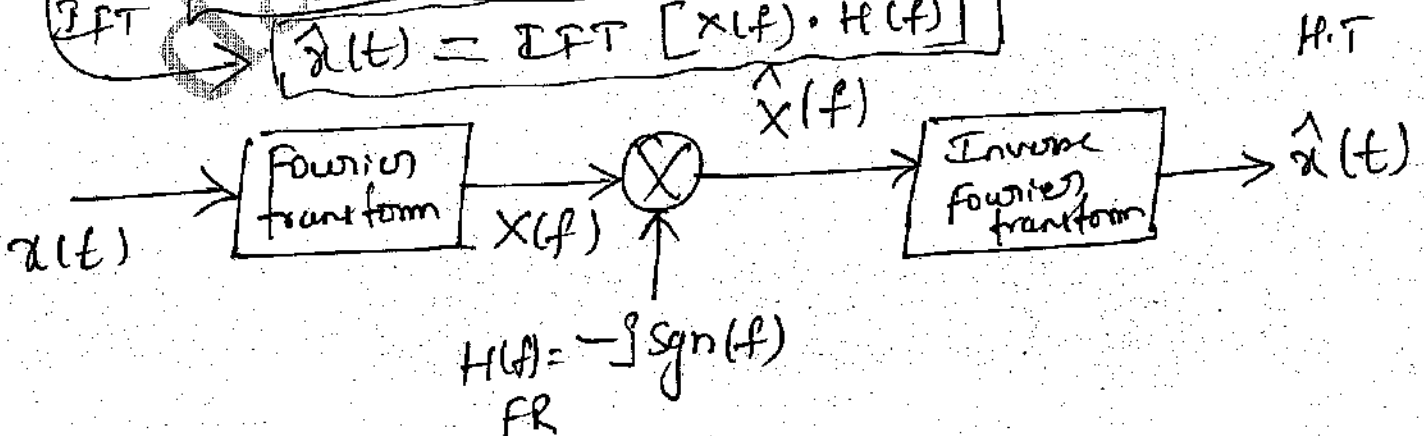 IFT
x̂(t) = IFT [X(f) · H(f)]
H.T
X̂(f)
Fourier
transform
Inverse
Fourier
transform
x̂(t)
x(t)
X(f)
H(f) = -j Sgn(f)
FR